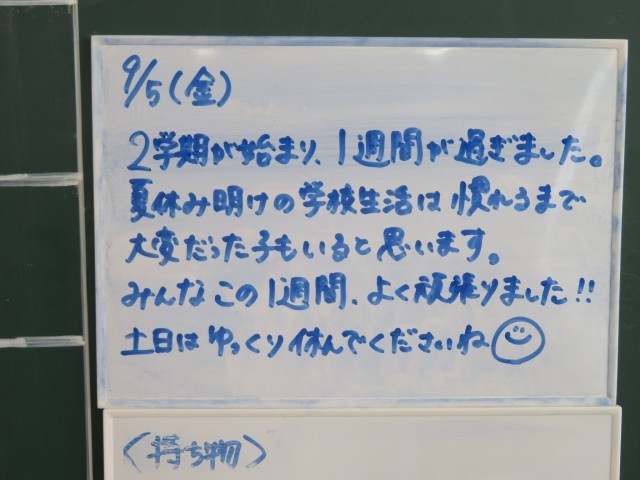 9/5(金)
2学期が始まり、1週間が過ぎました。
夏休み明けの学校生活は慣れるまで
大変だった子もいると思います。
みんなこの1週間、よく頑張りました!!
土日はゆっくり休んでくださいね
〈持ち物〉